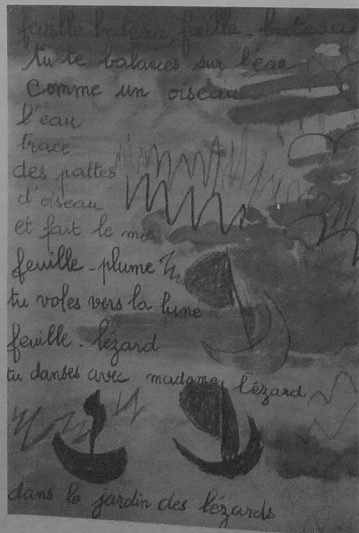 feuille bateau, feuille-bateau
tu te balances sur l'eau
comme un oiseau
l'eau
trace
des pattes
d'oiseau
et fait le mot
feuille-plume
tu voles vers la lune
feuille-lézard
tu danses avec madame lézard
dans le jardin des lézards